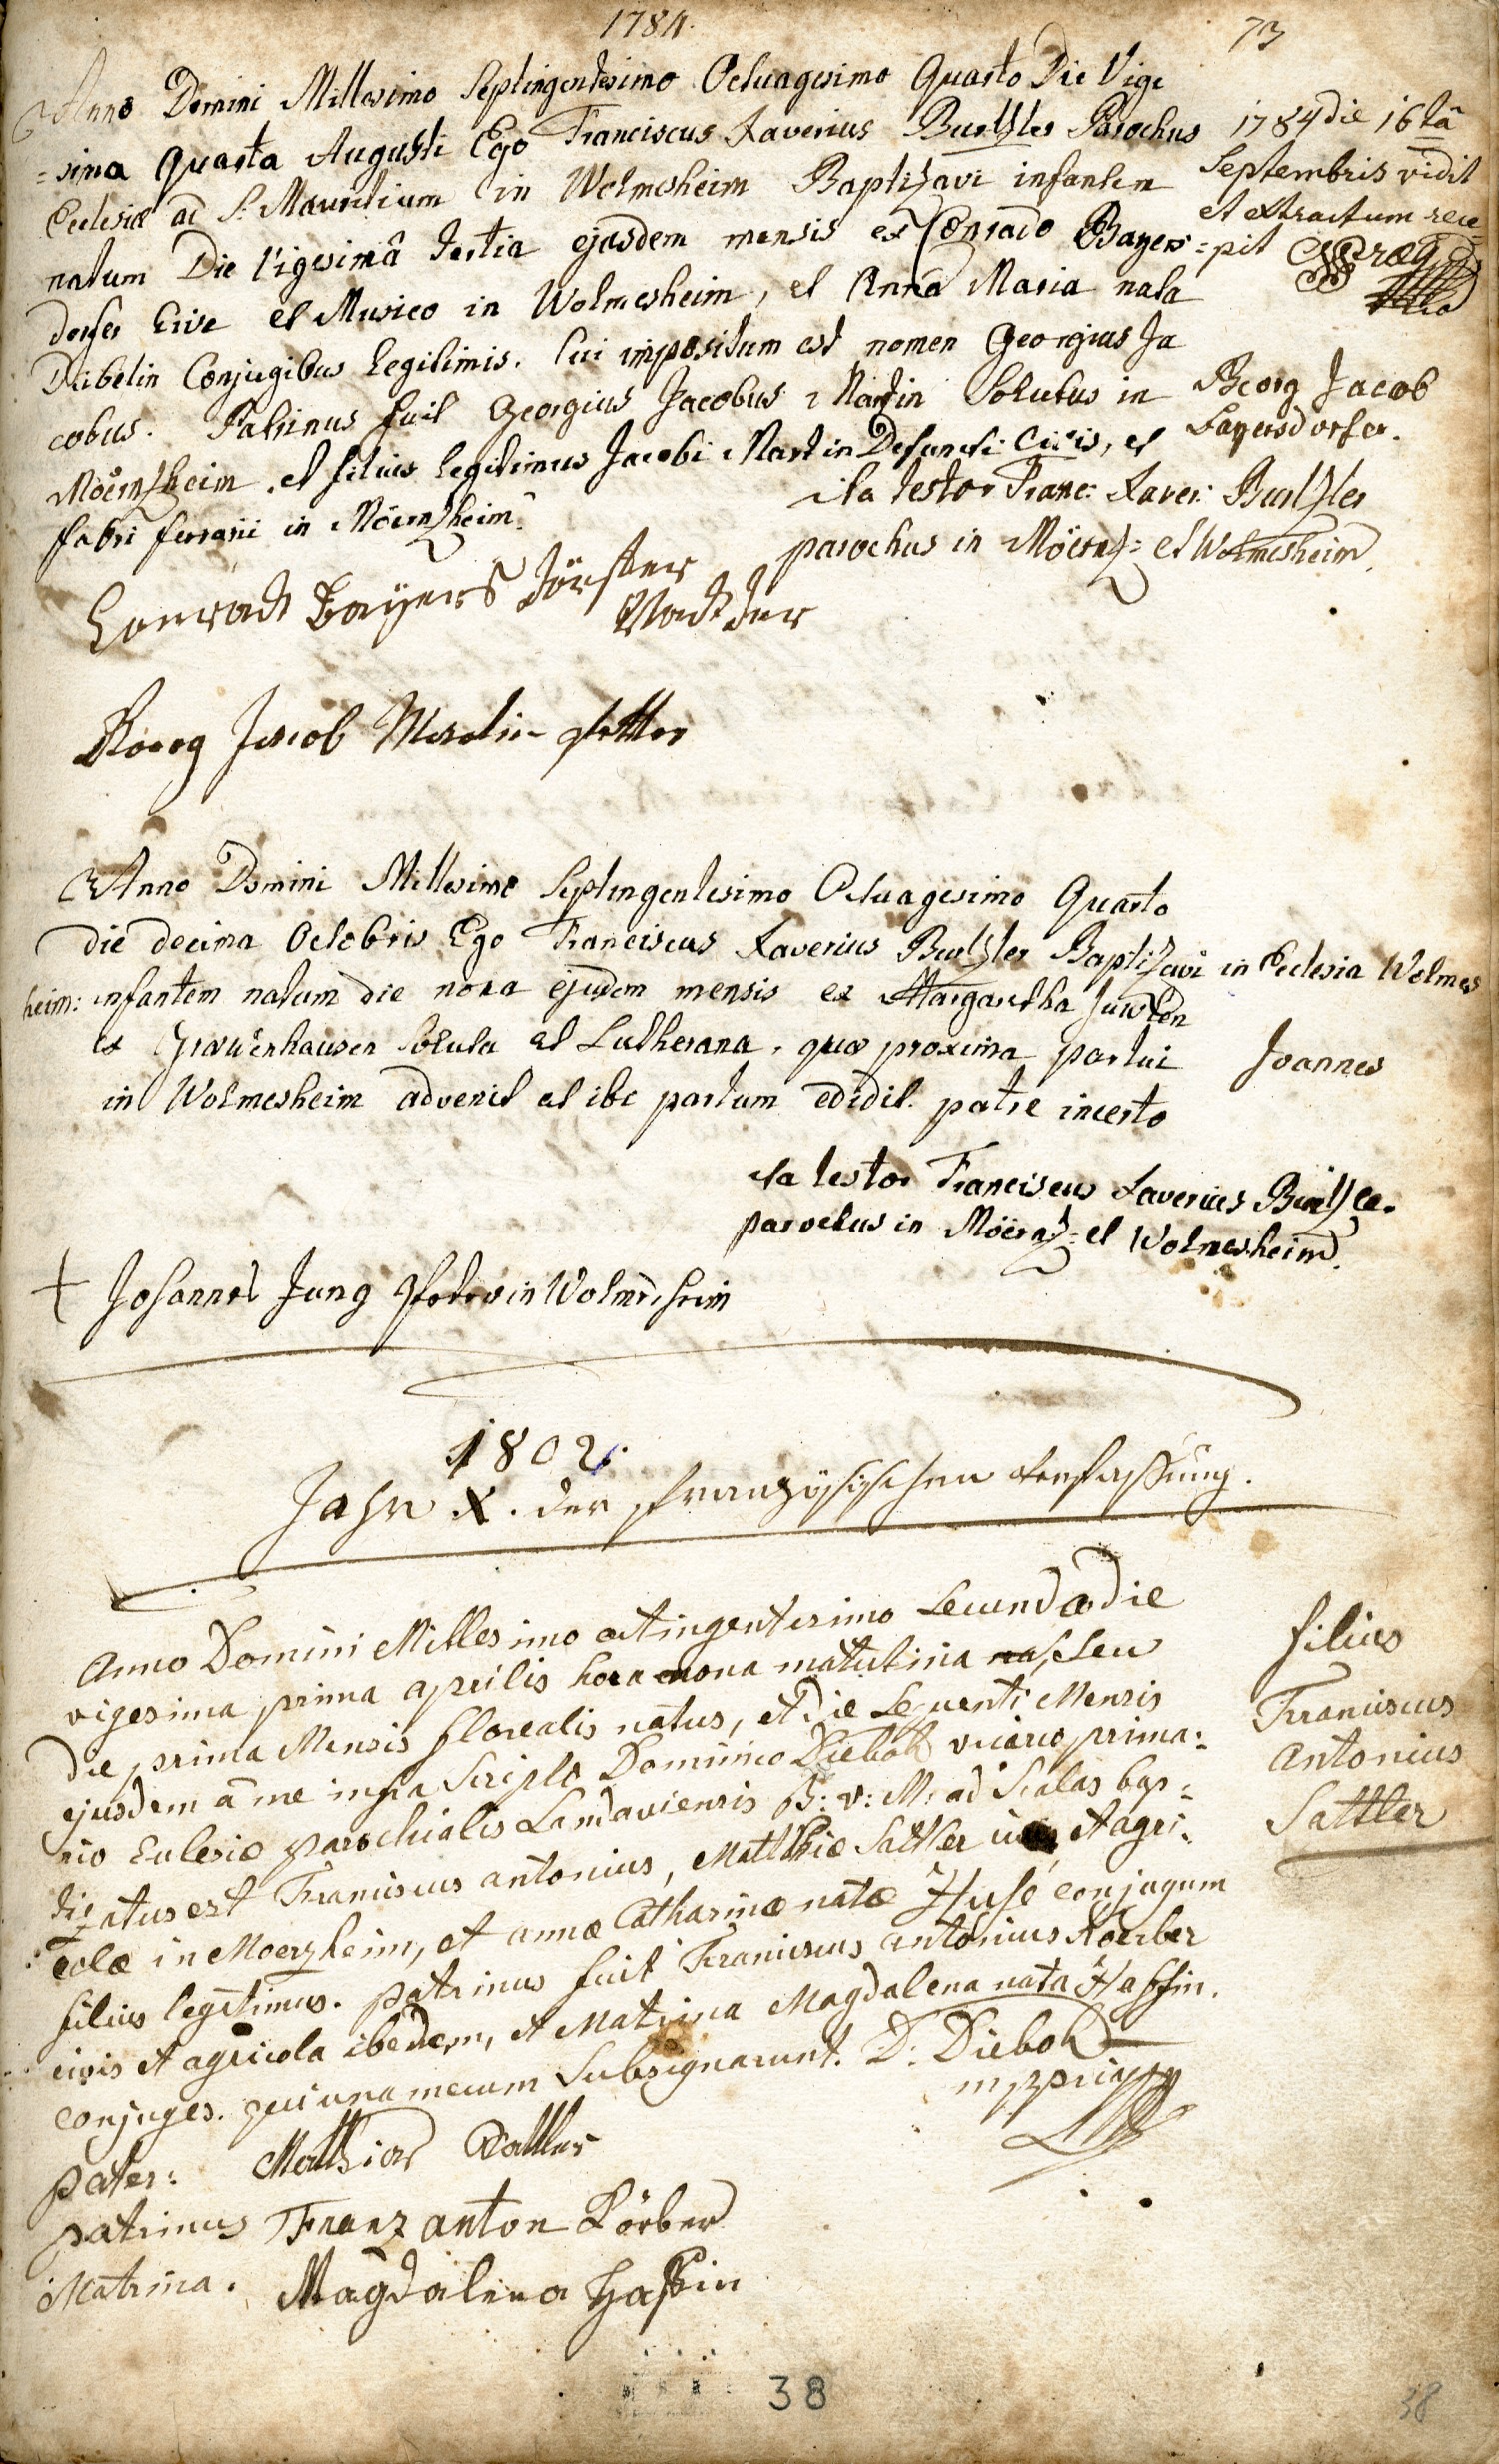 1784.
73
Anno Domini Millesimo Septingentesimo Octuagesimo Quarto Die Vige
=sima quarta Augusti Ego Franciscus Xaverius Burtzler Parochus
Ecclesiæ ad S. Mauritium in Wolmesheim Baptizavi infantem
natum Die Vigesimâ tertia ejusdem mensis ex Conrado Bayers=
dorfer Cive et Musico in Wolmesheim, et Anna Maria nata
Dübelin Conjugibus Legitimis. Cui impositum est nomen Georgius Ja
cobus. Patrinus fuit Georgius Jacobus Martin Solutus in
Möerzheim et filius legitimus Jacobi Martin Defuncti Civis, et
fabri ferrarii in Möerzheim.
1784 die 16tâ
Septembris vidit
et extractum rece=
=pit
Georg Jacob
Bayersdorfer.
ita testor Franc: Xaver: Burtzler
parochus in Möerz= et Wolmesheim.
Conradt Bayers Dörffer
Vadtder
Georg Jacob Merdin pfetter
Anno Domini Millesimo Septingentesimo Octuagesimo Quarto
die decima Octobris Ego Franciscus Xaverius Burtzler Baptizavi in Ecclesia Wolmes
heim: infantem natum die nona ejusdem mensis ex Margaretha
ex soluta et Lutherana, quæ proxima partui
in Wolmesheim advenit et ibi partum edidit. patre incerto
Joannes
ita testor Franciscus Xaverius Burtzler
parochus in Möerz= et Wolmesheim.
+ Johannes Jung in Wolmesheim
1802.
Jahr X. der französischen Verfassung.
Anno Domini Millesimo octingentesimo Secundo die
vigesima prima aprilis hora nona matutina nas, seu
die prima Mensis florealis natus, et die Sequenti Mensis
ejusdem â me infra Scripto Dominico Diebold vicario prima:
rio Eclesiæ parochialis Landaviensis B: v: M: ad Scalas bap:
tizatus est Franciscus antonius, Matthiæ Sattler et agri:
colæ in Moerzheim, et annæ Catharinæ natæ Huse conjugum
filius legitimus. patrinus fuit Franciscus antonius Koerber
civis et agricola ibedem, et Matrina Magdalena nata Hassin.
conjuges. qui una mecum Subsignarunt. D: Diebold
mppria
filius
Franciscus
Antonius
Sattler
pater: Mathias Sattler
patrinus Franz anton Körber
Matrina. Magdalena Hassin
38
38